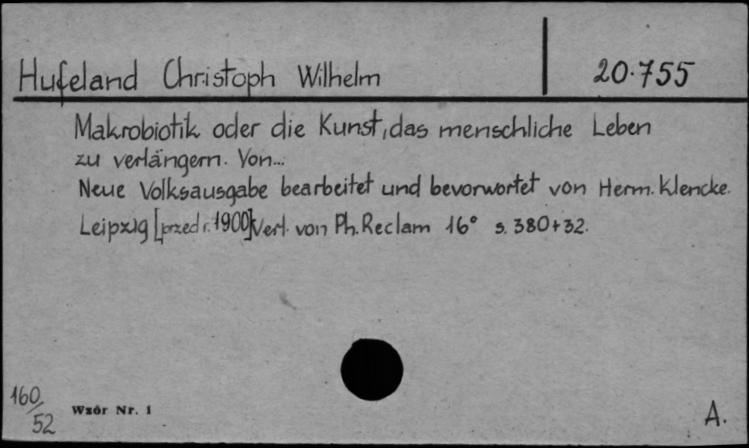 Hufeland Christoph Wilhelm 20.755
Makrobiotik oder die Kunst, das menschliche Leben
zu verlängern. Von...
Neue Volksausgabe bearbeitet und bevorwortet von Herm. Klencke.
Leipzig [przed r. 1900] Verl. von Ph. Reclam 16° s. 380+32.
160/52
Wzór Nr. 1
A.